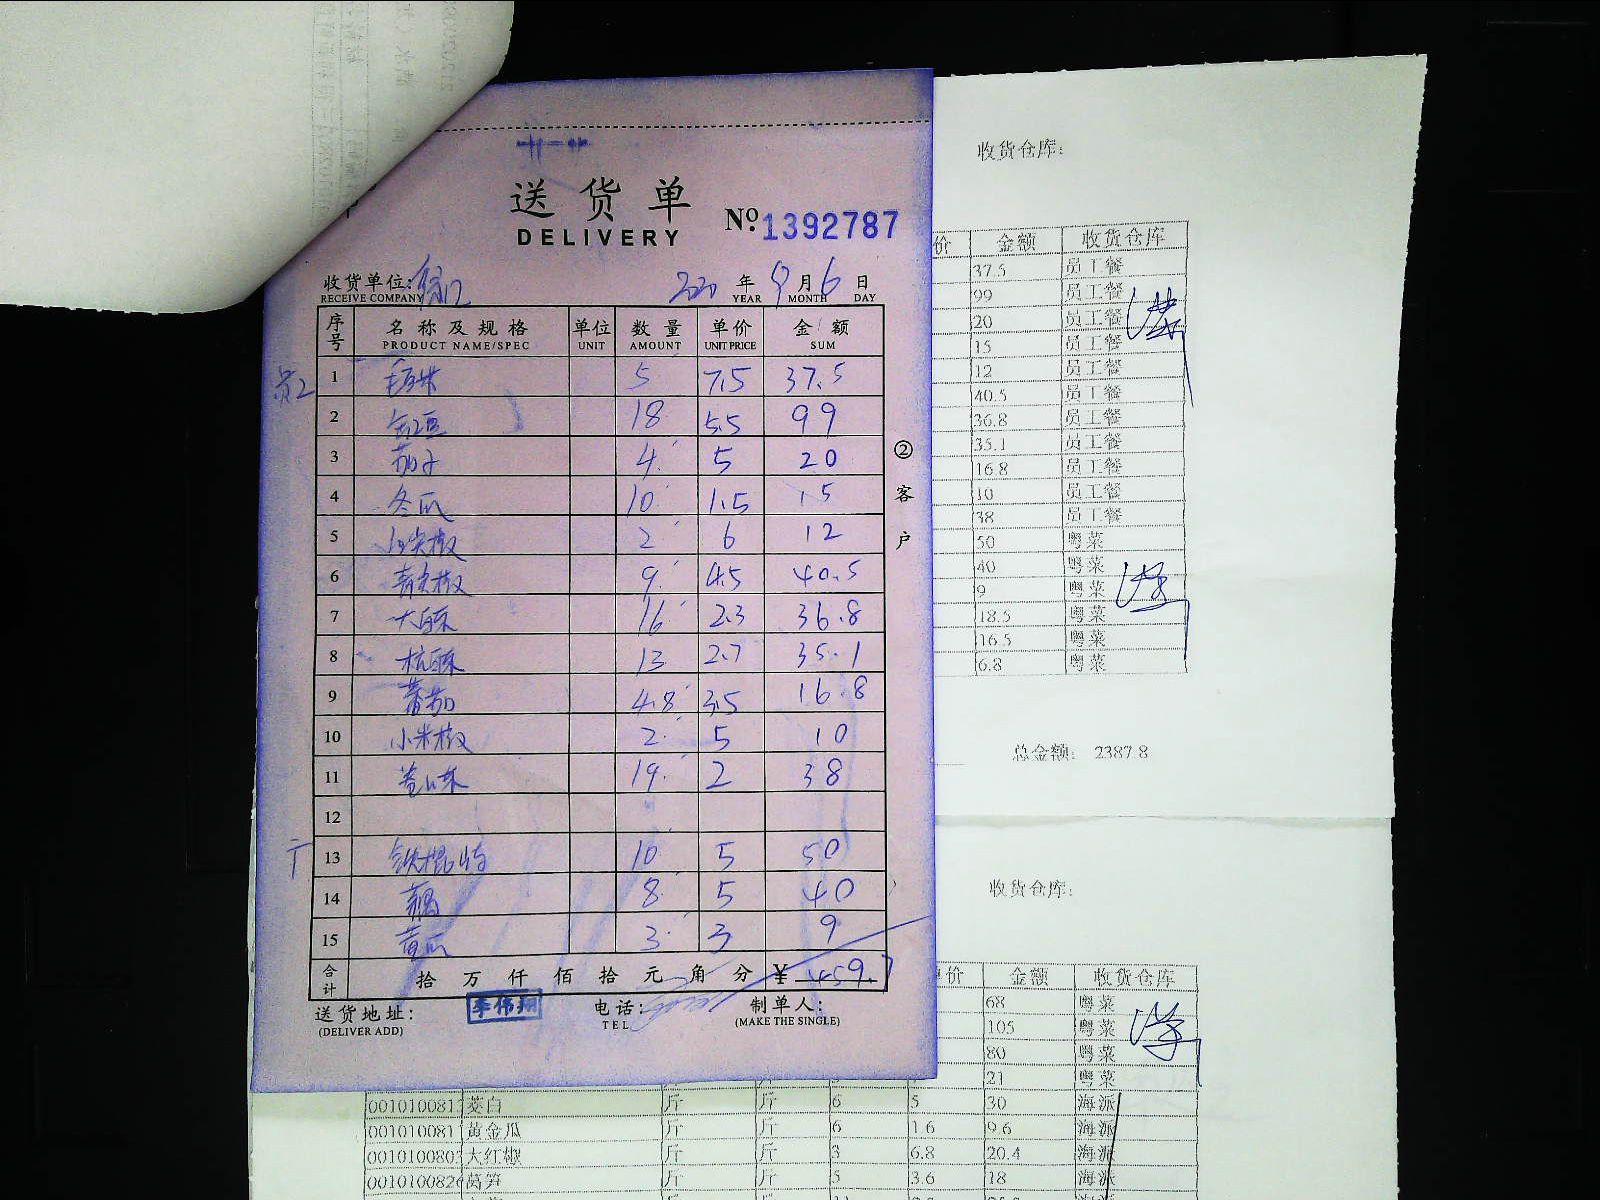 送货单
DELIVERY
No. 1392787
收货单位:
RECEIVE COMPANY
2020 年 9 月 6 日
YEAR MONTH DAY
序号 名称及规格 单位 数量 单价 金额
PRODUCT NAME/SPEC UNIT AMOUNT UNIT PRICE SUM
员工
1 毛白菜 5 7.5 37.5
2 缸豆 18 5.5 99
3 茄子 4 5 20
4 冬瓜 10 1.5 15
5 红尖椒 2 6 12
6 青尖椒 9 4.5 40.5
7 大白菜 16 2.3 36.8
8 杭白菜 13 2.7 35.1
9 蕃茄 4.8 3.5 16.8
10 小米椒 2 5 10
11 19 2 38
12
广
13 铁棍山药 10 5 50
14 藕 8 5 40
15 黄瓜 3 3 9
合计 拾 万 仟 佰 拾 元 角 分 ¥ 459.7
②客户
送货地址: 李伟翔 电话: 制单人:
(DELIVER ADD) TEL (MAKE THE SINGLE)
收货仓库:
价 金额 收货仓库
37.5 员工餐
99 员工餐
20 员工餐
15 员工餐
12 员工餐
40.5 员工餐
36.8 员工餐
35.1 员工餐
16.8 员工餐
10 员工餐
38 员工餐
50 粤菜
40 粤菜
9 粤菜
18.5 粤菜
16.5 粤菜
6.8 粤菜
总金额: 2387.8
收货仓库:
单价 金额 收货仓库
68 粤菜
105 粤菜
80 粤菜
21 粤菜
001010081 茭白 斤 斤 6 5 30 海派
001010081 黄金瓜 斤 斤 6 1.6 9.6 海派
001010080 大红椒 斤 斤 3 6.8 20.4 海派
001010082 莴笋 斤 斤 5 3.6 18 海派